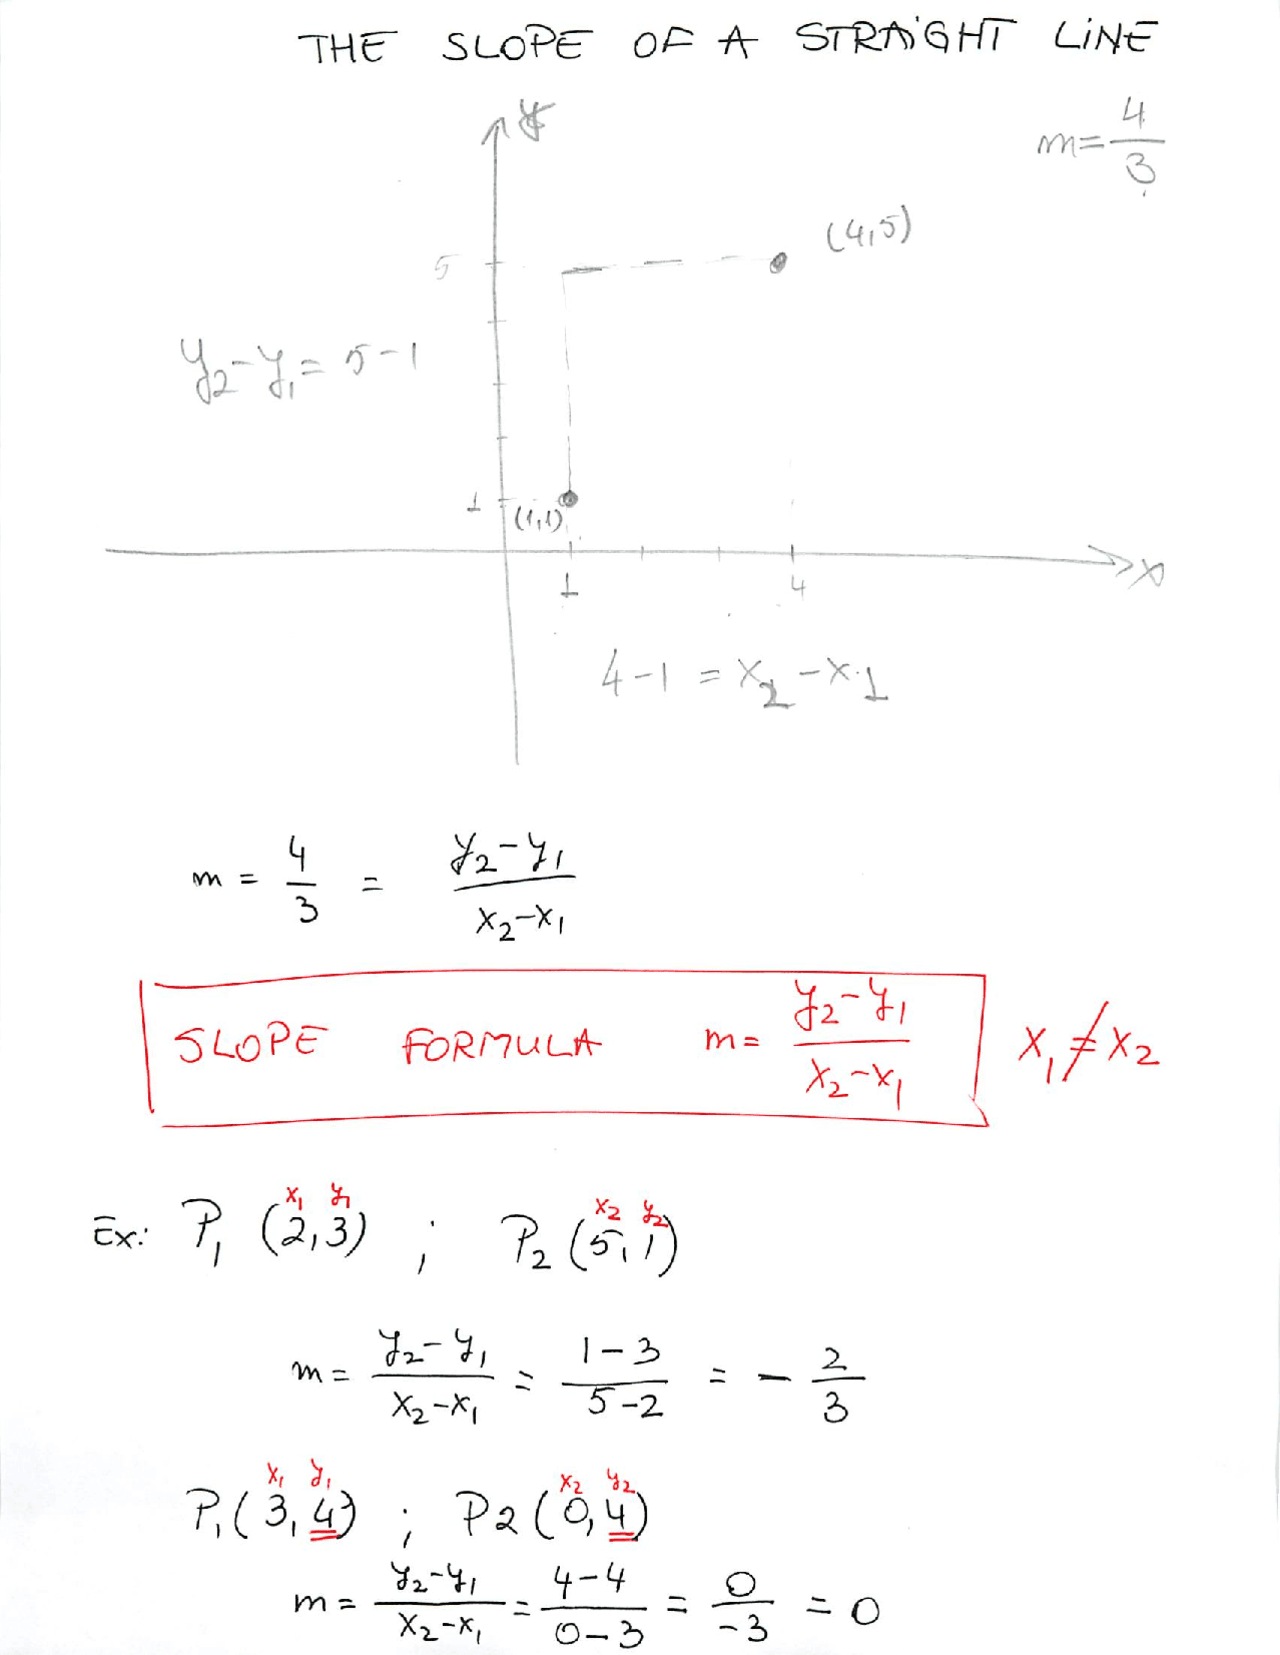 THE SLOPE OF A STRAIGHT LINE
y
m = 4/3
(4,5)
5
y₂ - y₁ = 5 - 1
1
(1,1)
x
1 4
4 - 1 = x₂ - x₁
m = 4/3 = (y₂ - y₁)/(x₂ - x₁)
SLOPE FORMULA m = (y₂ - y₁)/(x₂ - x₁) x₁ ≠ x₂
x₁ y₁ x₂ y₂
Ex: P₁ (2,3) ; P₂ (5,1)
m = (y₂ - y₁)/(x₂ - x₁) = (1 - 3)/(5 - 2) = - 2/3
x₁ y₁ x₂ y₂
P₁ (3,4) ; P2 (0,4)
m = (y₂ - y₁)/(x₂ - x₁) = (4 - 4)/(0 - 3) = 0/-3 = 0